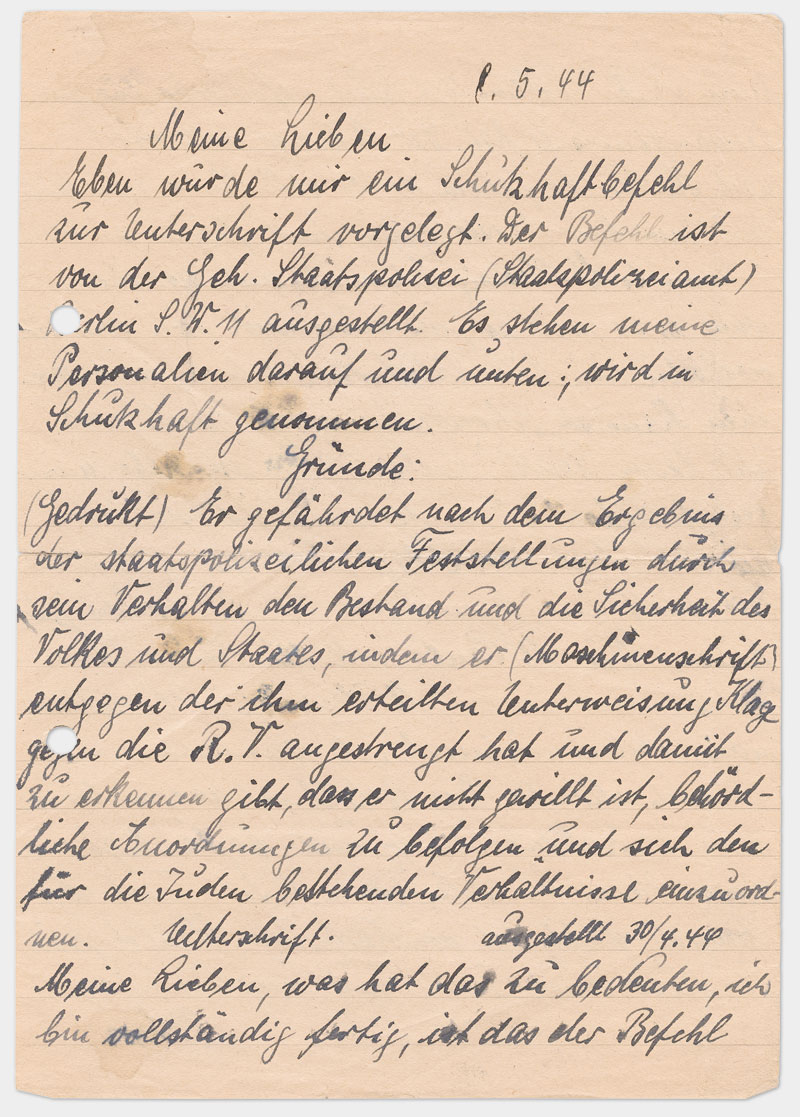 . 5. 44
Meine Lieben
Eben wurde mir ein Schutzhaftbefehl
zur Unterschrift vorgelegt. Der Befehl ist
von der Geh. Staatspolizei (Staatspolizeiamt)
Berlin S. W. 11 ausgestellt. Es stehen meine
Personalien darauf und unten:, wird in
Schutzhaft genommen.
Gründe:
(Gedrukt) Er gefährdet nach dem Ergebnis
der staatspolizeilichen Feststellungen durch
sein Verhalten den Bestand und die Sicherheit des
Volkes und Staates, indem er (Maschinenschrift)
entgegen der ihm erteilten Unterweisung Klage
gegen die R. V. angestrengt hat und damit
zu erkennen gibt, dass er nicht gewillt ist, behörd-
liche Anordnungen zu befolgen und sich den
für die Juden bestehenden Verhältnisse einzuord-
nen. Unterschrift. ausgestellt 30/4. 44
Meine Lieben, was hat das zu bedeuten, ich
bin vollständig fertig, ist das der Befehl